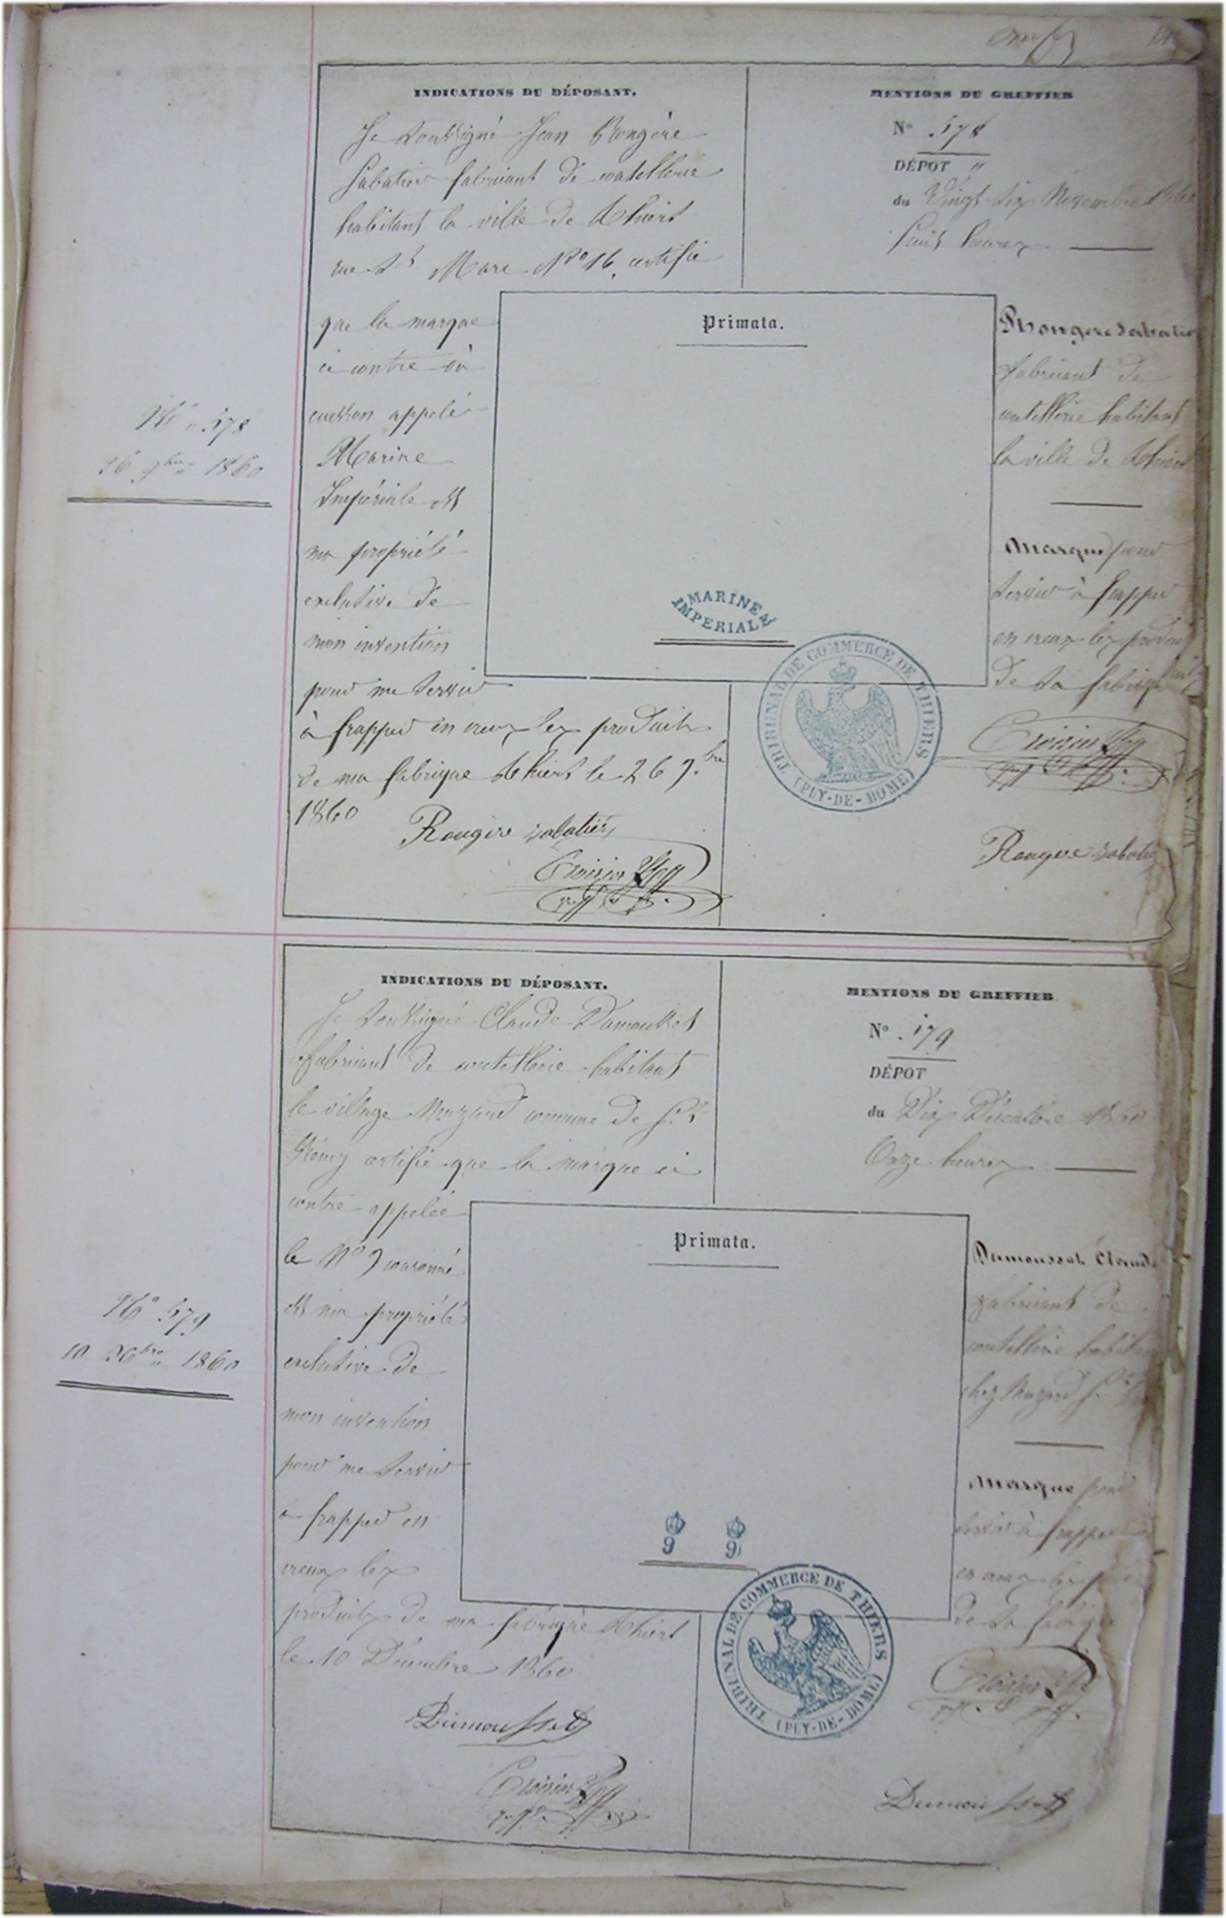 INDICATIONS DU DÉPOSANT.
Je soussigné Jean Rongère
Sabatier fabricant de coutellerie
habitant la ville de Thiers
rue St Marc No 16, certifie
que la marque
ci contre à
cuisson appelé
Marine
Impériale est
ma propriété
exclusive de
mon invention
pour me servir
à frapper en creux les produits
de ma fabrique Thiers le 26 9.bre
1860
Rougère sabatier
No 578
26 9bre 1860
MENTIONS DU GREFFIER
No 578
DÉPOT "
du Vingt six Novembre 1860
huit heures
Primata.
MARINE
IMPERIALE
TRIBUNAL DE COMMERCE DE THIERS
(PUY-DE-DOME)
fabricant de
coutellerie habitant
la ville de Thiers
Marque pour
servir à frapper
en creux les produits
de sa fabrique
Rougère sabatier
INDICATIONS DU DÉPOSANT.
Je soussigné Claude Dumousset
fabricant de coutellerie habitant
le village Muzard commune de St
Rémy certifie que la marque ci
contre appelée
le No 9 couronné
est ma propriété
exclusive de
mon invention
pour me servir
à frapper en
creux les
produits de ma fabrique Thiers
le 10 Décembre 1860
Dumousset
No 579
10 Xbre 1860
MENTIONS DU GREFFIER
No 579
DÉPOT
du Dix Décembre 1860
Onze heures
Primata.
9 9
TRIBUNAL DE COMMERCE DE THIERS
(PUY-DE-DOME)
Dumousset Claude
fabricant de
coutellerie habitant
chez Muzard St
Marque pour
servir à frapper
en creux les
de sa fabrique
Dumousset